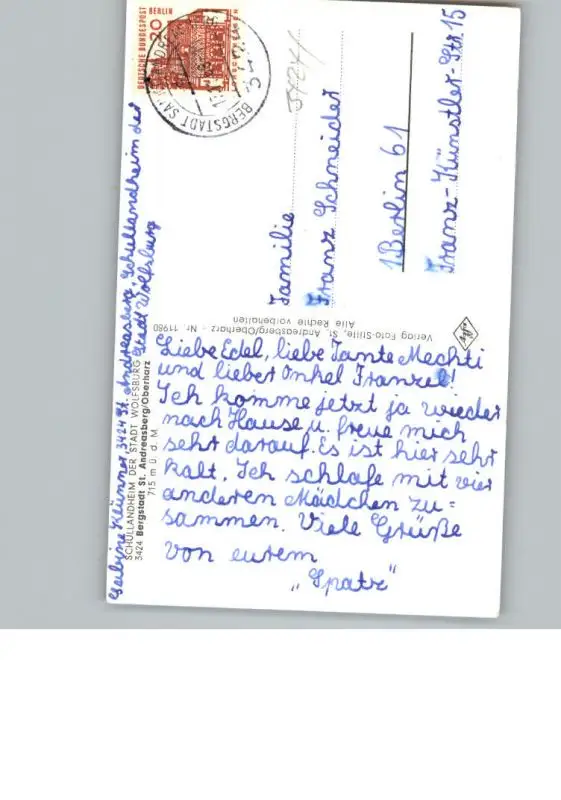 DEUTSCHE BUNDESPOST BERLIN
20
BERGSTADT
3424
Familie
Franz Schneider
1 Berlin 61
Franz-Künstler-Str. 15
Sabine Klünner, 3424 St. Andreasberg, Schullandheim der
Stadt Wolfsburg
SCHULLANDHEIM DER STADT WOLFSBURG
3424 Bergstadt St. Andreasberg/Oberharz
715 m ü. d. M.
Verlag Foto-Stille, St. Andreasberg/Oberharz - Nr. 11980
Alle Rechte vorbehalten
Liebe Edel, liebe Tante Mechti
und lieber Onkel Franzel!
Ich komme jetzt ja wieder
nach Hause u. freue mich
sehr darauf. Es ist hier sehr
kalt. Ich schlafe mit vier
anderen Mädchen zu=
sammen. Viele Grüße
von eurem
„Spatz“